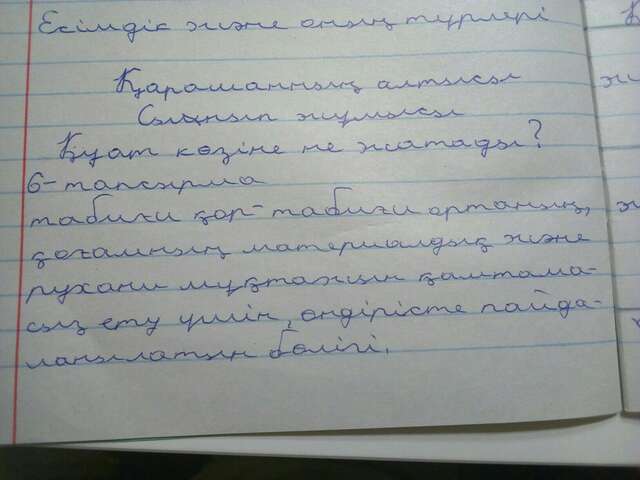 Есімдік және оның түрлері
Қарашаның алтысы
Сынып жұмысы
Қуат көзіне не жатады?
6-тапсырма
табиғи қор-табиғи ортаның,
қоғамның материалдық және
рухани мұқтажын қамтама-
сыз ету үшін, өндірісте пайда-
ланылатын бөлігі.